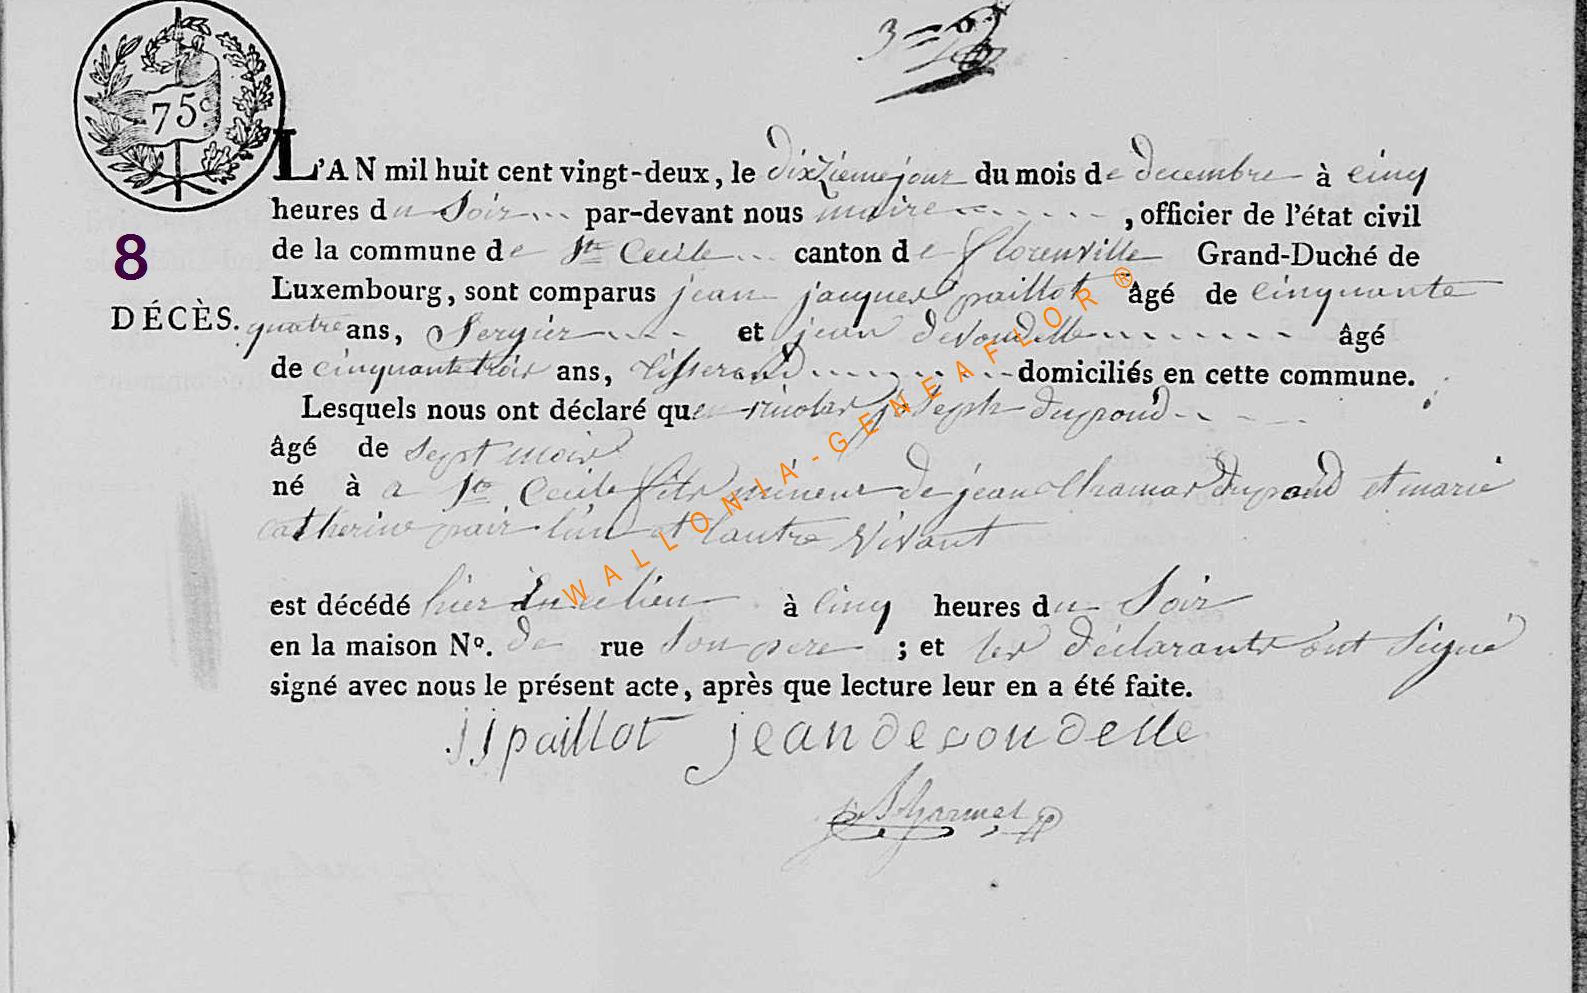 75c
3 =
L'AN mil huit cent vingt-deux, le dixzieme jour du mois de decembre à cinq
heures du Soir par-devant nous maire , officier de l'état civil
de la commune de Ste Cecile canton de florenville Grand-Duché de
Luxembourg, sont comparus jean jacques paillot âgé de cinquante
8
DÉCÈS. quatre ans, Sergier et jean devoudelle âgé
de cinquante trois ans, tisserand domiciliés en cette commune.
Lesquels nous ont déclaré que nicolas joseph dupond
âgé de sept mois
né à a Ste Cecile fils mineur de jean thamas dupond et marie
catherine pair lun et lautre vivant
est décédé hier en ce lieu à cinq heures du Soir
en la maison No. de rue son pere ; et les déclarants ont signé
signé avec nous le présent acte, après que lecture leur en a été faite.
jj paillot jean devoudelle
WALLONIA-GENEAFLOR®